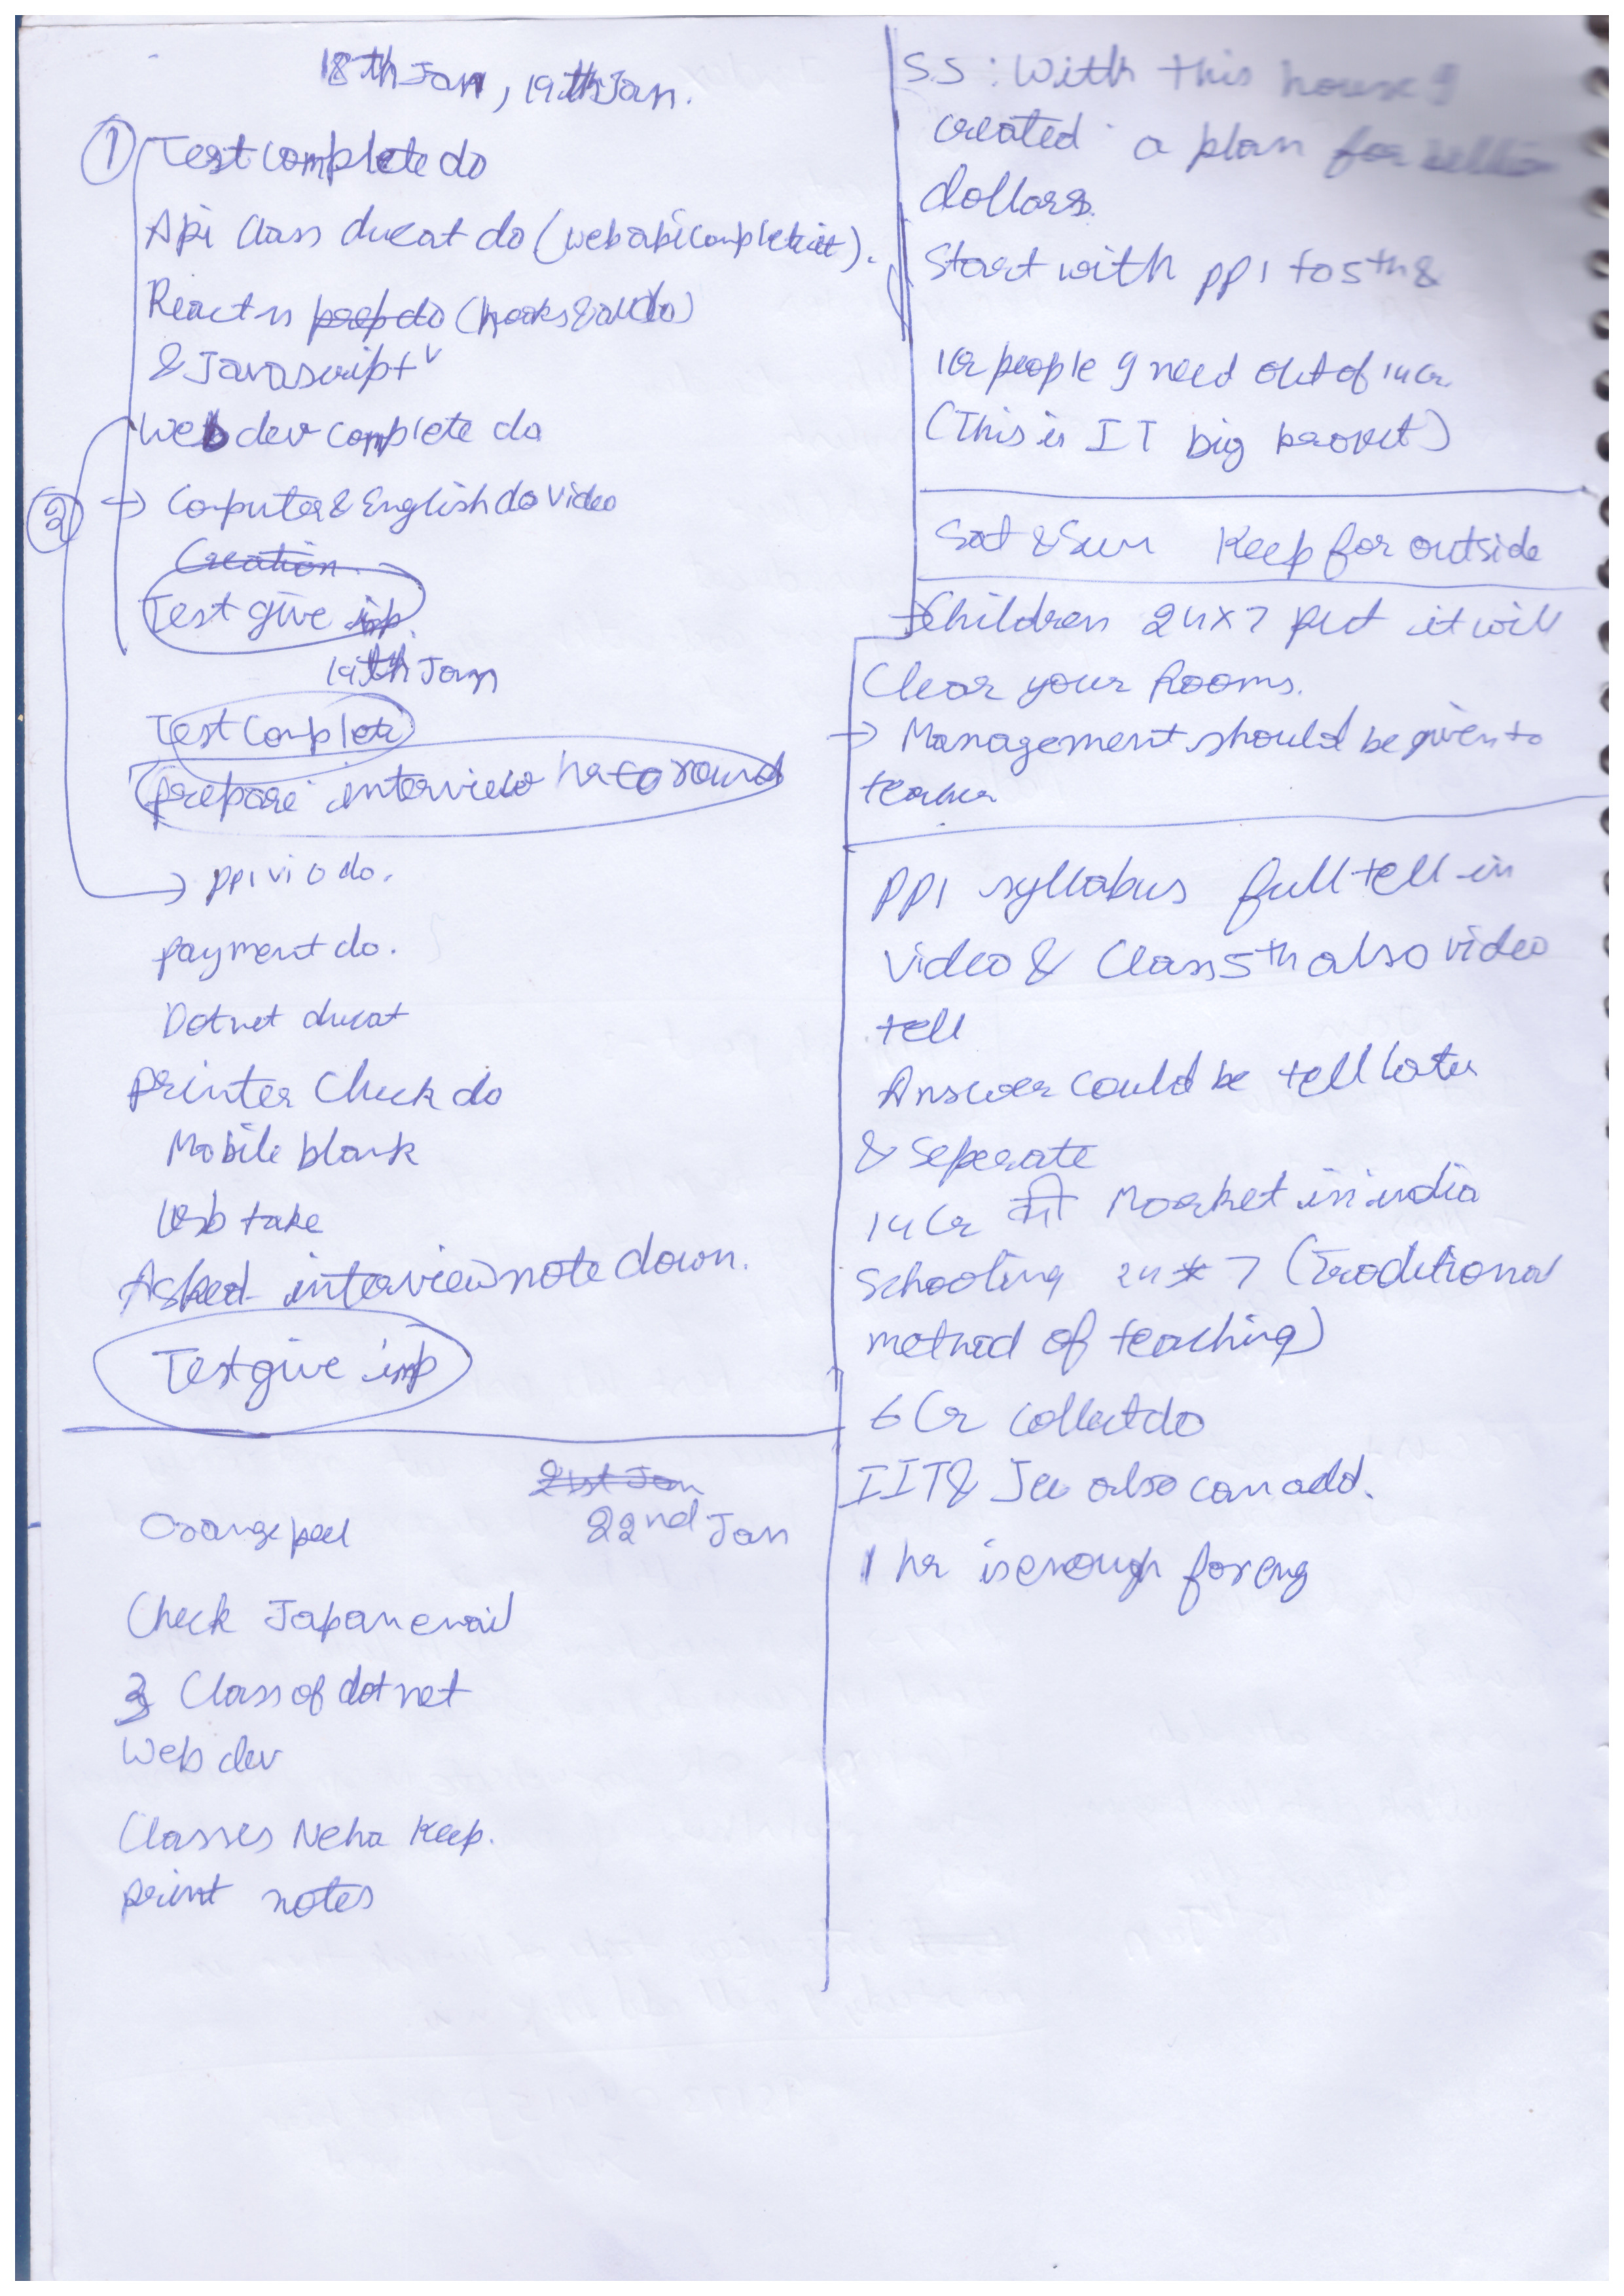 18th Jan, 19th Jan.
① Test complete do
Api Class ducat do (web api complete it).
React n prep do (hooks & all do)
& Javascript
Web dev complete do
② → Computer & English do video
Creation
Test give imp.
19th Jan
Test Complete
prepare interview hr round
→ pp1 vi do.
payment do.
Dotnet ducat
printer Check do
Mobile blank
Usb take
Asked interview note down.
Test give imp
21st Jan
22nd Jan
Orange peel
Check Japan email
3 Class of dot net
Web dev
Classes Neha keep.
print notes
S.S : With this house I
created a plan for billion
dollars.
Start with pp1 to 5th &
1cr people I need out of 14 cr.
(This is IT big)
Sat & Sun Keep for outside
→ Children 24x7 put it will
Clear your Rooms.
→ Management should be given to
teacher
PP1 syllabus full tell in
video & Class 5th also video
tell
Answer could be tell later
& Seperate
14 Cr Market in india
Schooling 24*7 (Traditional
method of teaching)
6 Cr collect do
IIT & Jee also can add.
1 hr is enough for eng